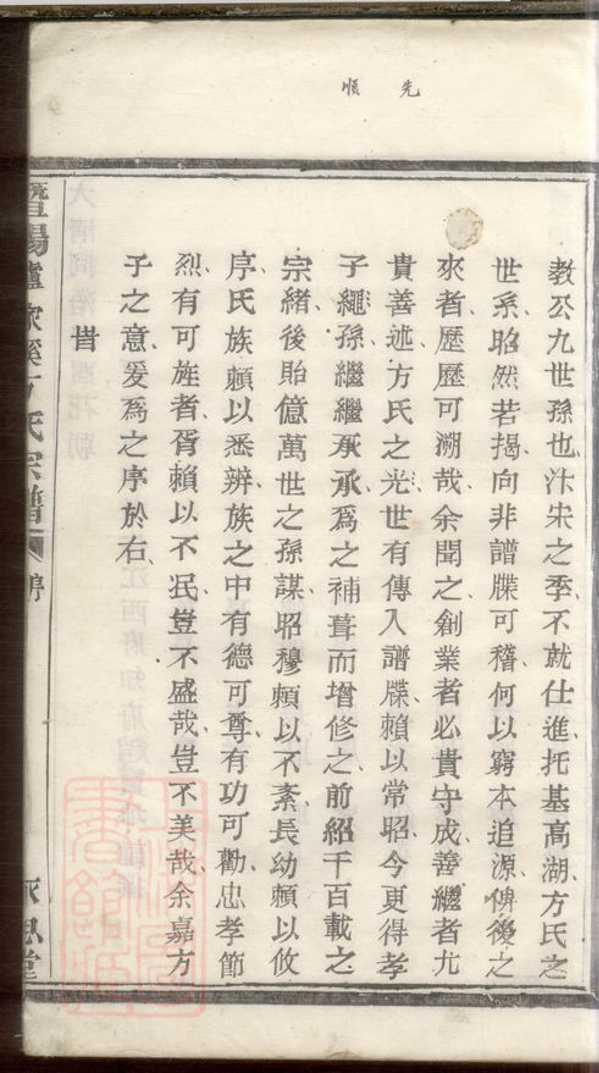 先順
教公九世孫也、汴宋之季、不就仕進、托基高湖、方氏之
世系、昭然若揭、向非譜牒可稽、何以窮本追源、俾後之
來者、歷歷可溯哉、余聞之、創業者必貴守成、善繼者尤
貴善述、方氏之光、世有傳人、譜牒賴以常昭、今更得孝
子繩孫、繼繼承承、爲之補葺而增修之、前紹千百載之
宗緒、後貽億萬世之孫謀、昭穆賴以不紊、長幼賴以攸
序、氏族賴以悉辨、族之中有德可尊、有功可勸、忠孝節
烈、有可旌者、胥賴以不泯、豈不盛哉、豈不美哉、余嘉方
子之意、爰爲之序於右、
旹
暨陽 家溪方氏宗譜
序
永思堂